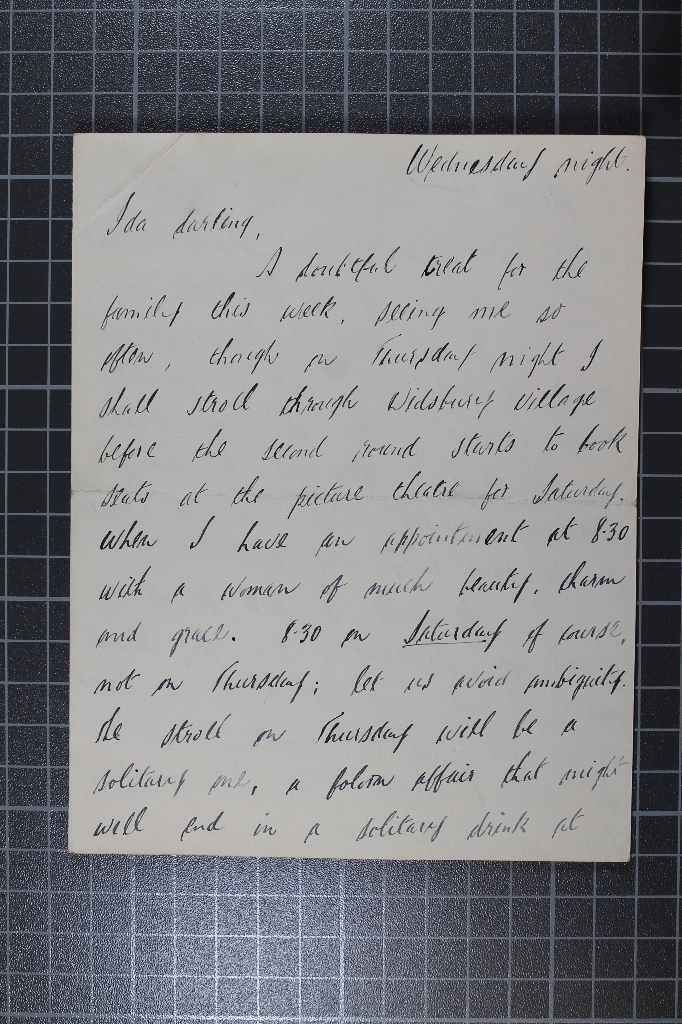 Wednesday night.
Ida darling,
A doubtful treat for the
family this week, seeing me so
often, though on Thursday night I
shall stroll through Didsbury Village
before the second round starts to book
seats at the picture theatre for Saturday,
when I have an appointment at 8-30
with a woman of much beauty, charm
and grace. 8-30 on Saturday of course,
not on Thursday; let us avoid ambiguity.
The stroll on Thursday will be a
solitary one, a forlorn affair that might
well end in a solitary drink at